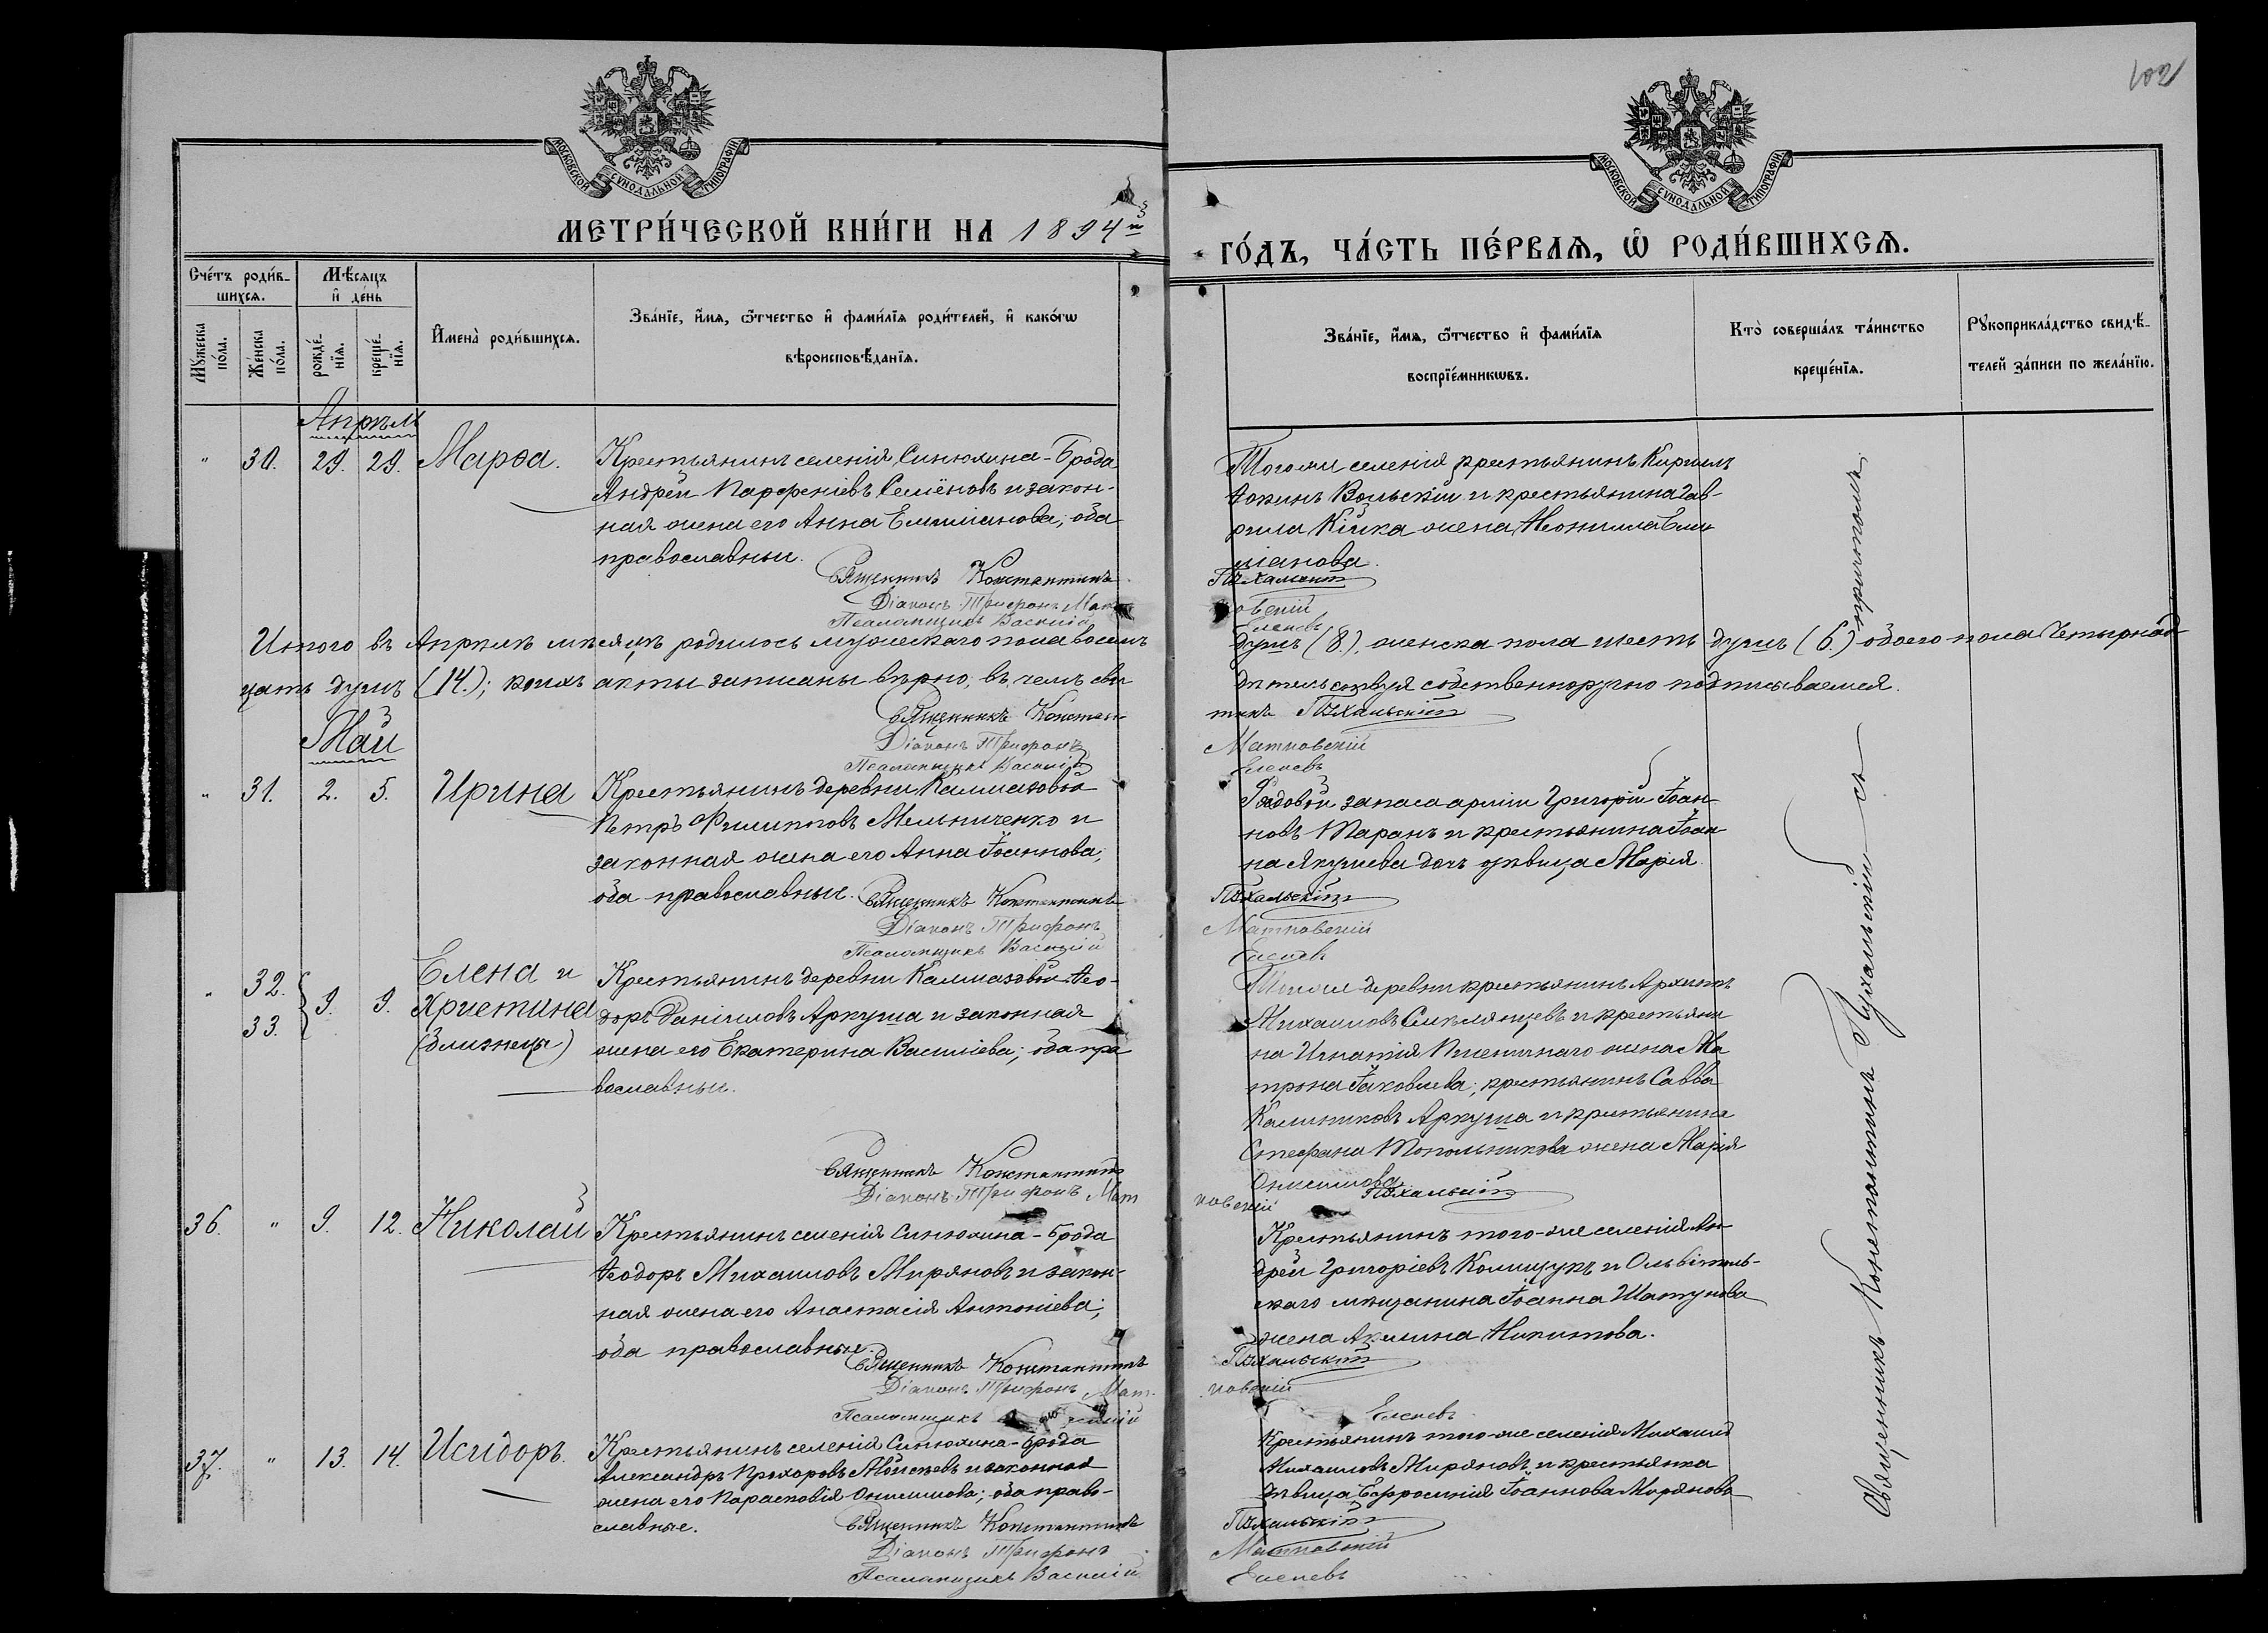 102
МОСКОВСКОЙ СѴНОДАЛЬНОЙ ТИПОГРАФІИ
МОСКОВСКОЙ СѴНОДАЛЬНОЙ ТИПОГРАФІИ
МЕТРИ́ЧЕСКОЙ КНИ́ГИ НА 1894й
ГО́ДЪ, ЧА́СТЬ ПЕ́РВАѦ, Ѡ҆ РОДИ́ВШИХСѦ.
Сче́тъ роди́в-
шихсѧ.
Мꙋ́жеска по́ла.
Же́нска по́ла.
Мѣ́сѧцъ
и҆ де́нь
рожде́-
нїѧ.
креще́-
нїѧ.
И҆мена̀ роди́вшихсѧ.
Зва́нїе, и҆́мѧ, ѻ҆́тчество и҆ фами́лїѧ роди́телей, и҆ како́гѡ
вѣроисповѣ́данїѧ.
Зва́нїе, и҆́мѧ, ѻ҆́тчество и҆ фами́лїѧ
воспрїе́мникѡвъ.
Кто̀ соверша́лъ та́инство
креще́нїѧ.
Рꙋкоприкла́дство свидѣ́-
телей за́писи по жела́нїю.
Апрѣль
" 30. 29. 29. Марѳа.
Крестьянинъ селенія Синюхина-Брода
Андрей Парфеніевъ Семёновъ и закон-
ная жена его Анна Емиліанова; оба
православныи.
Священникъ Константинъ
Діаконъ Трифонъ Мат
Псаломщикъ Василій
Того же селенія крестьянинъ Кириллъ
Ѳокинъ Вольскій и крестьянина Гав-
рила Кійка жена Неонилла Еми
ліанова.
Пухальскій
ковскій
Елевъ
Итого въ Апрѣлѣ мѣсяцѣ родилось мужескаго пола восемь
душъ (8.), женска пола шесть душъ (6.) обоего пола четырнад-
цать душъ (14.); коихъ акты записаны вѣрно, въ чемъ сви
дѣтельствуя собственноручно подписываемся.
Священникъ Констан-
Діаконъ Трифонъ
Псаломщикъ Василій
тинъ Пухальскій
Матковскій
Май
" 31. 2. 5. Ирина
Крестьянинъ деревни Калмазовой
Петръ Филипповъ Мельниченко и
законная жена его Анна Іоаннова;
оба православныи.
Священникъ Константинъ
Діаконъ Трифонъ
Псаломщикъ Василій
Рядовой запаса арміи Григорій Іоан-
новъ Таранъ и крестьянина Іоан
на Якушева дочь дѣвица Марія.
Пухальскій
Матковскій
" 32. 33. 9. 9. Елена и
Христина
(близнецы)
Крестьянинъ деревни Калмазовой Ѳео-
доръ Даніиловъ Аркуша и законная
жена его Екатерина Василіева; оба пра
вославныи.
Священникъ Константинъ
Діаконъ Трифонъ Мат
Той же деревни крестьянинъ Архипъ
Михаиловъ и крестьяни
на Игнатія Пшеничнаго жена Ма
трона Іаковлева; крестьянинъ Савва
Калиниковъ Аркуша и крестьянина
Стефана Топольникова жена Марія
Онисимова.
Пухальскій
ковскій
36. " 9. 12. Николай
Крестьянинъ селенія Синюхина-Брода
Ѳеодоръ Михаиловъ Миряновъ и закон-
ная жена его Анастасія Антоніева;
оба православныи.
Священникъ Константинъ
Діаконъ Трифонъ Мат-
Псаломщикъ
Крестьянинъ того-же селенія Ан-
дрей Григоріевъ Колищукъ и Ольвіополь-
скаго мѣщанина Іоанна Шатунова
жена Акилина Никитова.
Пухальскій
ковскій
37. " 13. 14. Исидоръ.
Крестьянинъ селенія Синюхина-Брода
Александръ Прохоровъ Моисеевъ и законная
жена его Параскевія Онисимова; оба право-
славные.
Священникъ Константинъ
Діаконъ Трифонъ
Псаломщикъ Василій
Крестьянинъ того-же селенія Михаилъ
Михаиловъ Миряновъ и крестьянка
дѣвица Ефросинія Іоаннова Мирянова
Пухальскій
Матковскій
Священникъ Константинъ Пухальскій съ
причтомъ.